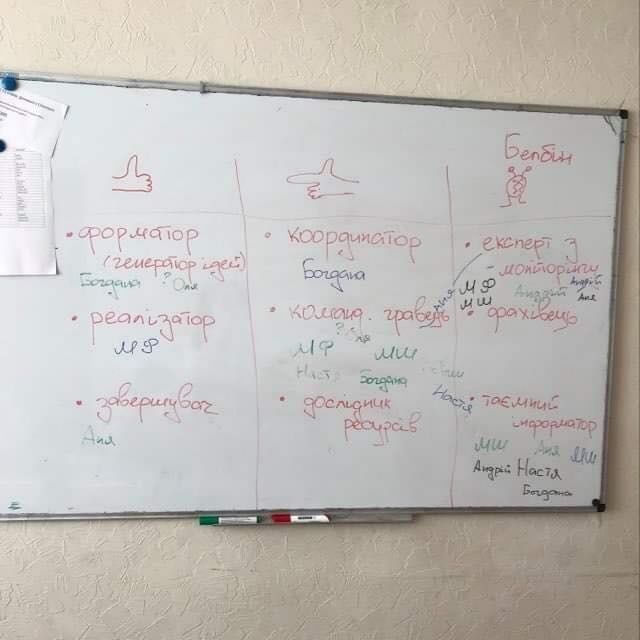 Белбін
• форматор
(генератор ідей)
Богдана ? Оля
• реалізатор
МФ
• завершувач
Аня
• координатор
Богдана
• команд. гравець
? Оля
МФ МШ
Настя Богдана
Настя
• дослідник
ресурсів
• експерт з
моніторингу
МФ Андрій Андрій
МШ Аня
• фахівець
• таємний
інформатор
МШ Аня МШ
Андрій Настя
Богдана